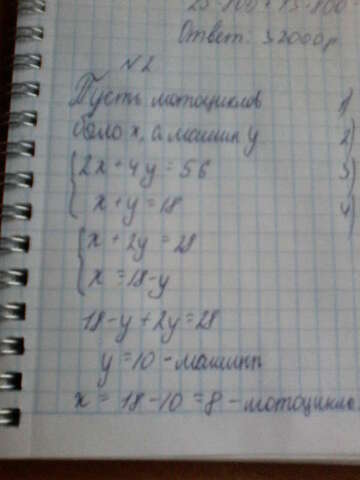 25·800+15·800
Ответ: 32000 р.
№2
Пусть мотоциклов 1)
было x, а машин y 2)
2x+4y=56 3)
x+y=18 4)
x+2y=28
x=18-y
18-y+2y=28
y=10-машин
x=18-10=8-мотоцикло